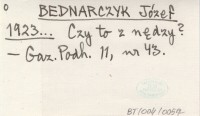 o
BEDNARCZYK Józef
1923... Czy to z nędzy?
- Gaz. Podh. 11, nr 43.
BJ/004/0059